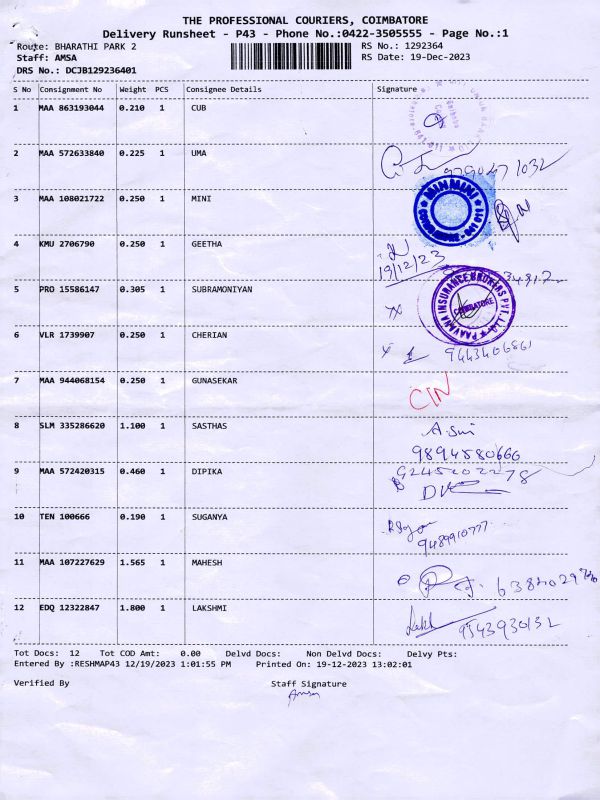 THE PROFESSIONAL COURIERS, COIMBATORE
Delivery Runsheet - P43 - Phone No.:0422-3505555 - Page No.:1
Route: BHARATHI PARK 2 RS No.: 1292364
Staff: AMSA RS Date: 19-Dec-2023
DRS No.: DCJB129236401
S No Consignment No Weight PCS Consignee Details Signature
1 MAA 863193044 0.210 1 CUB
641 011
2 MAA 572633840 0.225 1 UMA
3 MAA 108021722 0.250 1 MINI
MINMINI
COIMBATORE - 641 011
4 KMU 2706790 0.250 1 GEETHA
19/12/23
5 PRO 15586147 0.305 1 SUBRAMONIYAN
PAAVANA INSURANCE BROKERS PVT. LTD.
COIMBATORE
6 VLR 1739907 0.250 1 CHERIAN
9443406861
7 MAA 944068154 0.250 1 GUNASEKAR
CIN
8 SLM 335286620 1.100 1 SASTHAS
9894580666
9 MAA 572420315 0.460 1 DIPIKA
9245202278
10 TEN 100666 0.190 1 SUGANYA
9489910777
11 MAA 107227629 1.565 1 MAHESH
12 EDQ 12322847 1.800 1 LAKSHMI
9543930132
Tot Docs: 12 Tot COD Amt: 0.00 Delvd Docs: Non Delvd Docs: Delvy Pts:
Entered By :RESHMAP43 12/19/2023 1:01:55 PM Printed On: 19-12-2023 13:02:01
Verified By Staff Signature
Amsa